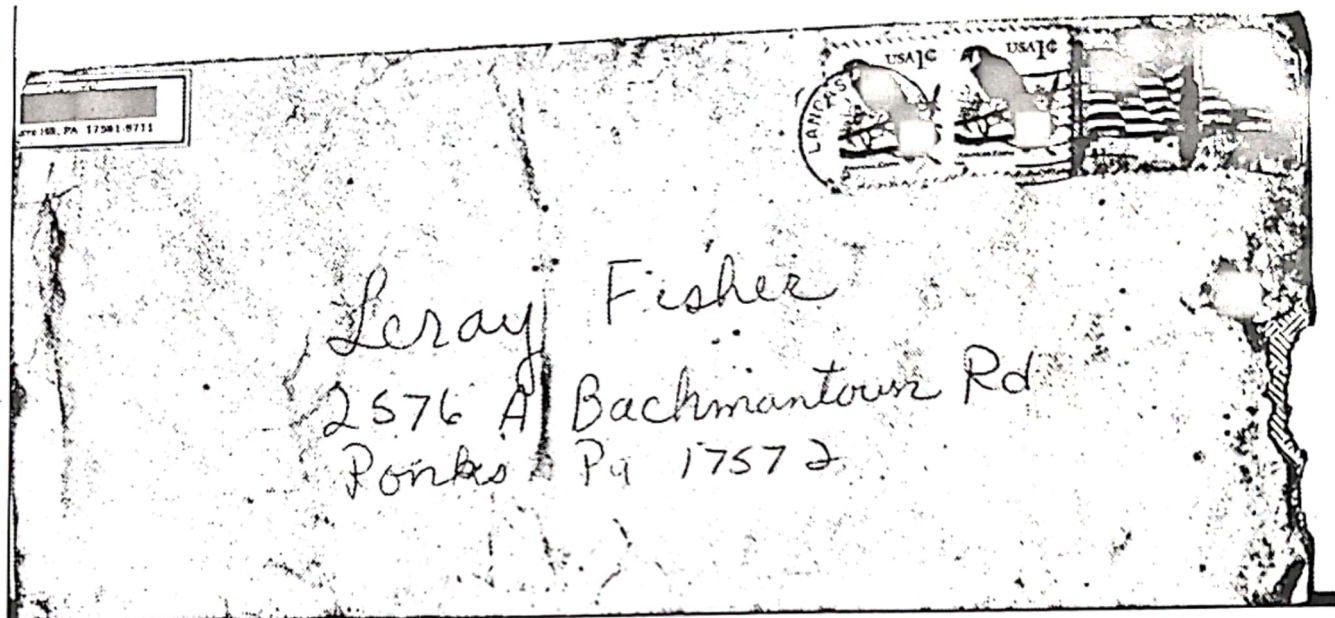 PA 17581-9711
USA 1¢ USA 1¢
LANCAS
Leray Fisher
2576 A Bachmantown Rd
Ronks Pa 17572